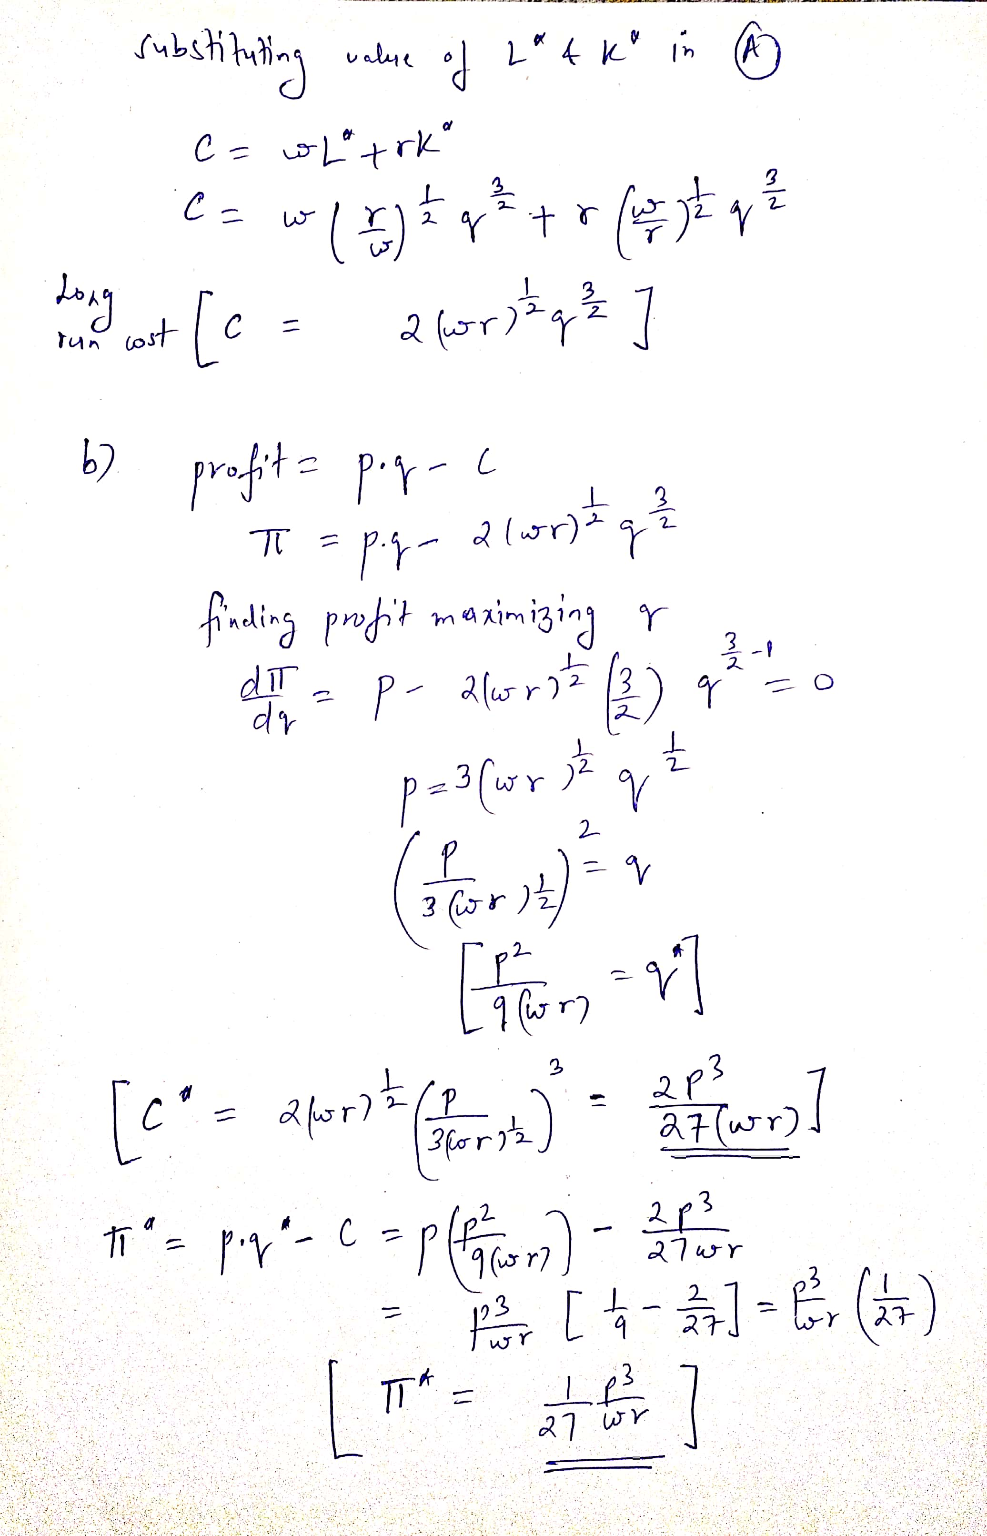 substituting value of L* & K* in Ⓐ
C = wL* + rK*
C = w(r/w)^{1/2} q^{3/2} + r(w/r)^{1/2} q^{3/2}
Long run cost [C = 2(wr)^{1/2} q^{3/2}]
b) profit = p.q - C
π = p.q - 2(wr)^{1/2} q^{3/2}
finding profit maximizing q
dπ/dq = p - 2(wr)^{1/2} (3/2) q^{3/2 - 1} = 0
p = 3(wr)^{1/2} q^{1/2}
(p/3(wr)^{1/2})^2 = q
[p^2/9(wr) = q*]
[C* = 2(wr)^{1/2} (p/3(wr)^{1/2})^3 = 2p^3/27(wr)]
π* = p.q* - C = p(p^2/9(wr)) - 2p^3/27wr
= p^3/wr [1/9 - 2/27] = p^3/wr (1/27)
[π* = 1/27 p^3/wr]